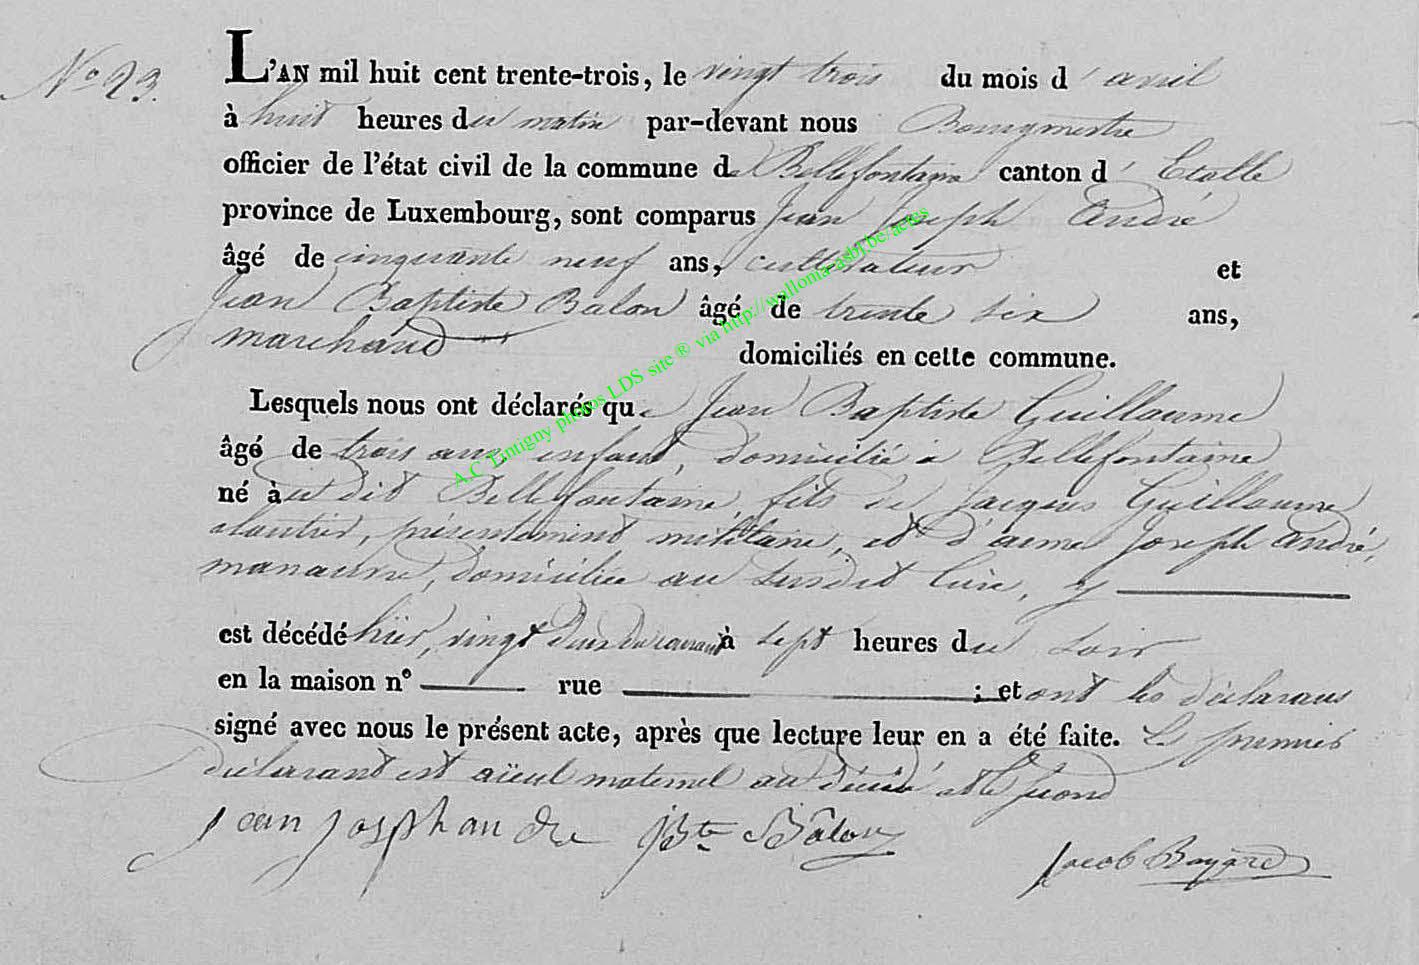 N° 23.
L'AN mil huit cent trente-trois, le vingt trois du mois d'avril
à huit heures du matin par-devant nous Bourgmestre
officier de l'état civil de la commune de Bellefontaine canton d'Etalle
province de Luxembourg, sont comparus Jean Joseph André
âgé de cinquante neuf ans, cultivateur et
Jean Baptiste Balon âgé de trente six ans,
marchand domiciliés en cette commune.
Lesquels nous ont déclarés que Jean Baptiste Guillaume
âgé de trois ans enfant, domicilié à Bellefontaine
né au dit Bellefontaine, fils de Jacques Guillaume
cloutier, présentement militaire, et d'anne Joseph André,
manœuvre, domiciliée au susdit lieu, y
est décédé hier, vingt deux du courant à sept heures du soir
en la maison n° rue ; et ont les déclarans
signé avec nous le présent acte, après que lecture leur en a été faite. Le premier
déclarant est aïeul maternel au décédé et le second
jean josphan dre JBte Bâlon
Jacob Bayard
A.C Tintigny photos LDS site ® via http://wallonia-asbl.be/actes